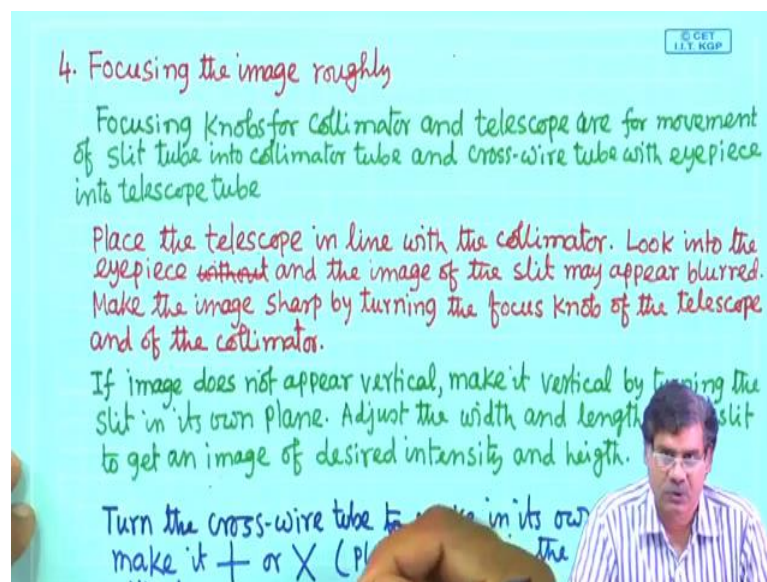 © CET
I.I.T. KGP
4. Focusing the image roughly
Focusing Knobs for collimator and telescope are for movement
of slit tube into collimator tube and cross-wire tube with eyepiece
into telescope tube
Place the telescope in line with the collimator. Look into the
eyepiece without and the image of the slit may appear blurred.
Make the image sharp by turning the focus knob of the telescope
and of the collimator.
If image does not appear vertical, make it vertical by turning the
slit in its own plane. Adjust the width and length slit
to get an image of desired intensity and heigth.
Turn the cross-wire tube in its own
make it + or X the